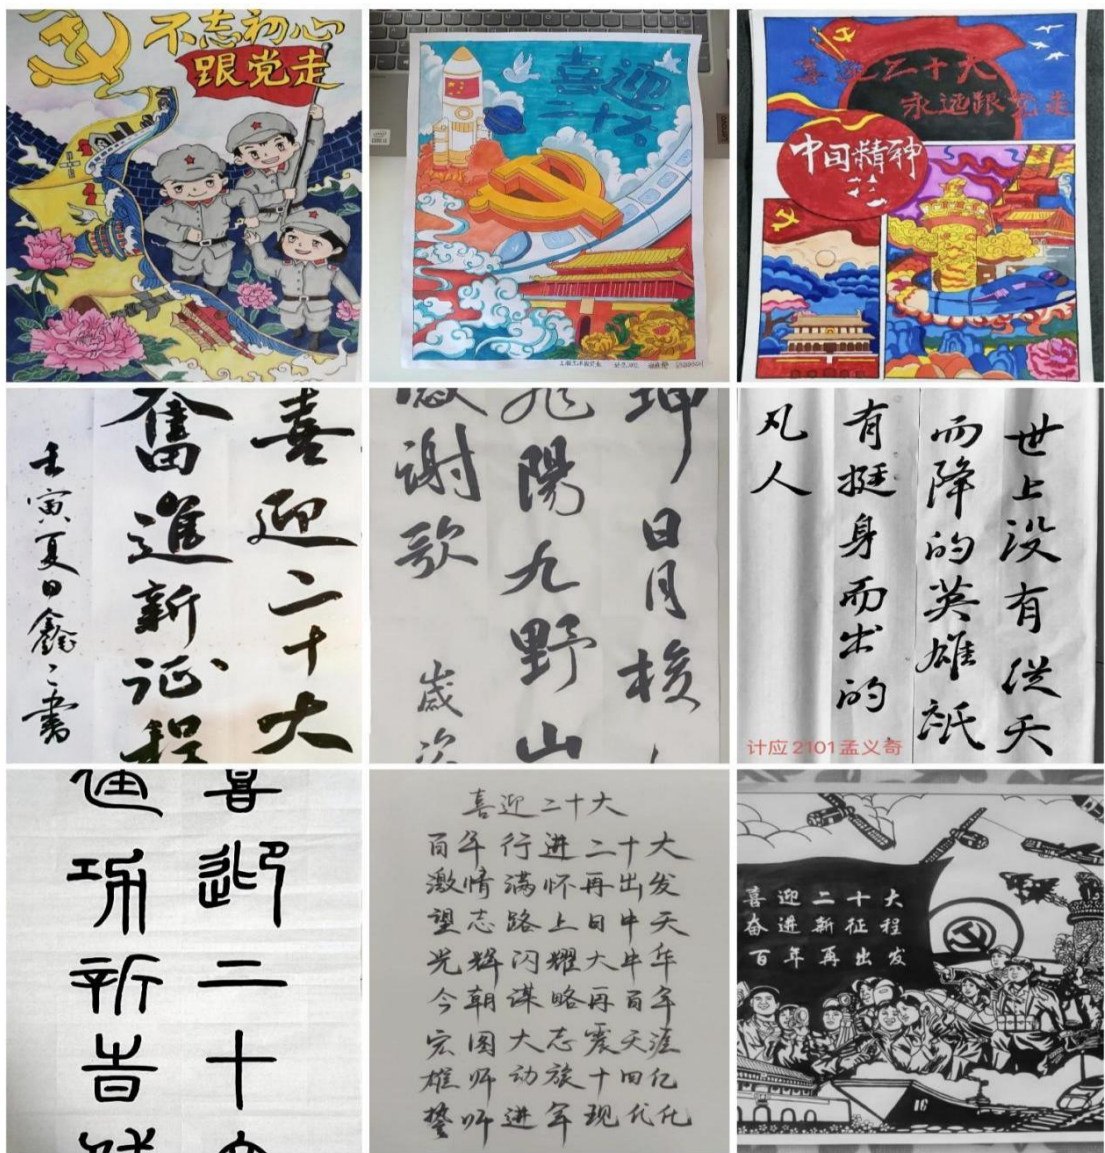 不忘初心
跟党走
喜迎
二十大
喜迎二十大
永远跟党走
中国精神
喜迎二十大
奮進新征程
壬寅夏日鑫
書
日月梭
陽九野山
谢歌
歲
世上没有従天
而降的英雄祇
有挺身而出的
凡人
计应2101孟义奇
喜迎二十
建功新旹
喜迎二十大
百年行进二十大
激情满怀再出发
望志路上日中天
光辉闪耀大中华
今朝谋略再百年
宏图大志震天涯
雄师动旅十四亿
誓师进军现代化
喜迎二十大
奋进新征程
百年再出发
16